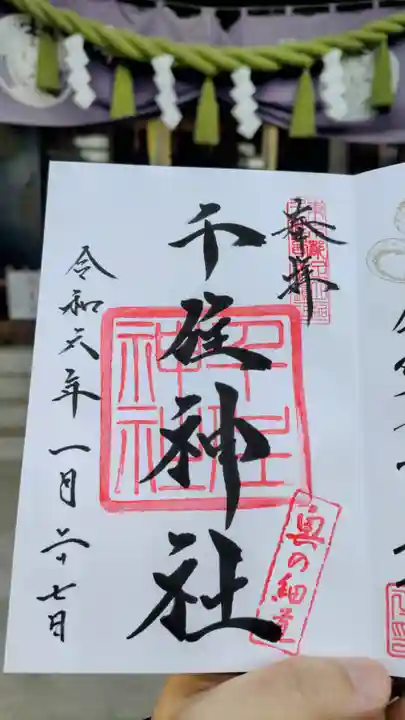 奉拝
千住神社
奥の細道
令和六年一月二十七日